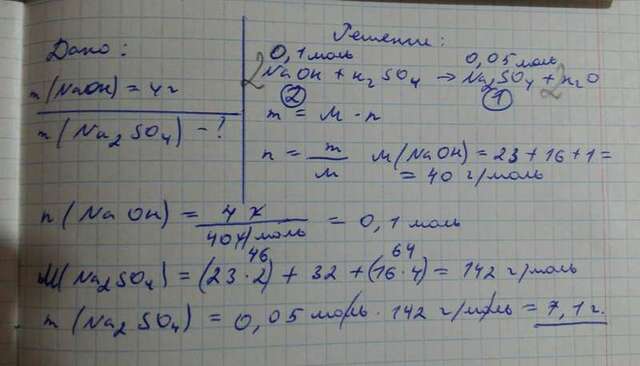 Дано:
m(NaOH) = 4 г
m(Na2SO4) - ?
Решение:
0,1 моль 0,05 моль
2NaOH + H2SO4 → Na2SO4 + 2H2O
2 1
m = M · n
n = m/M M(NaOH) = 23 + 16 + 1 =
= 40 г/моль
n(NaOH) = 4 г / 40 г/моль = 0,1 моль
46 64
M(Na2SO4) = (23 · 2) + 32 + (16 · 4) = 142 г/моль
m(Na2SO4) = 0,05 моль · 142 г/моль = 7,1 г.